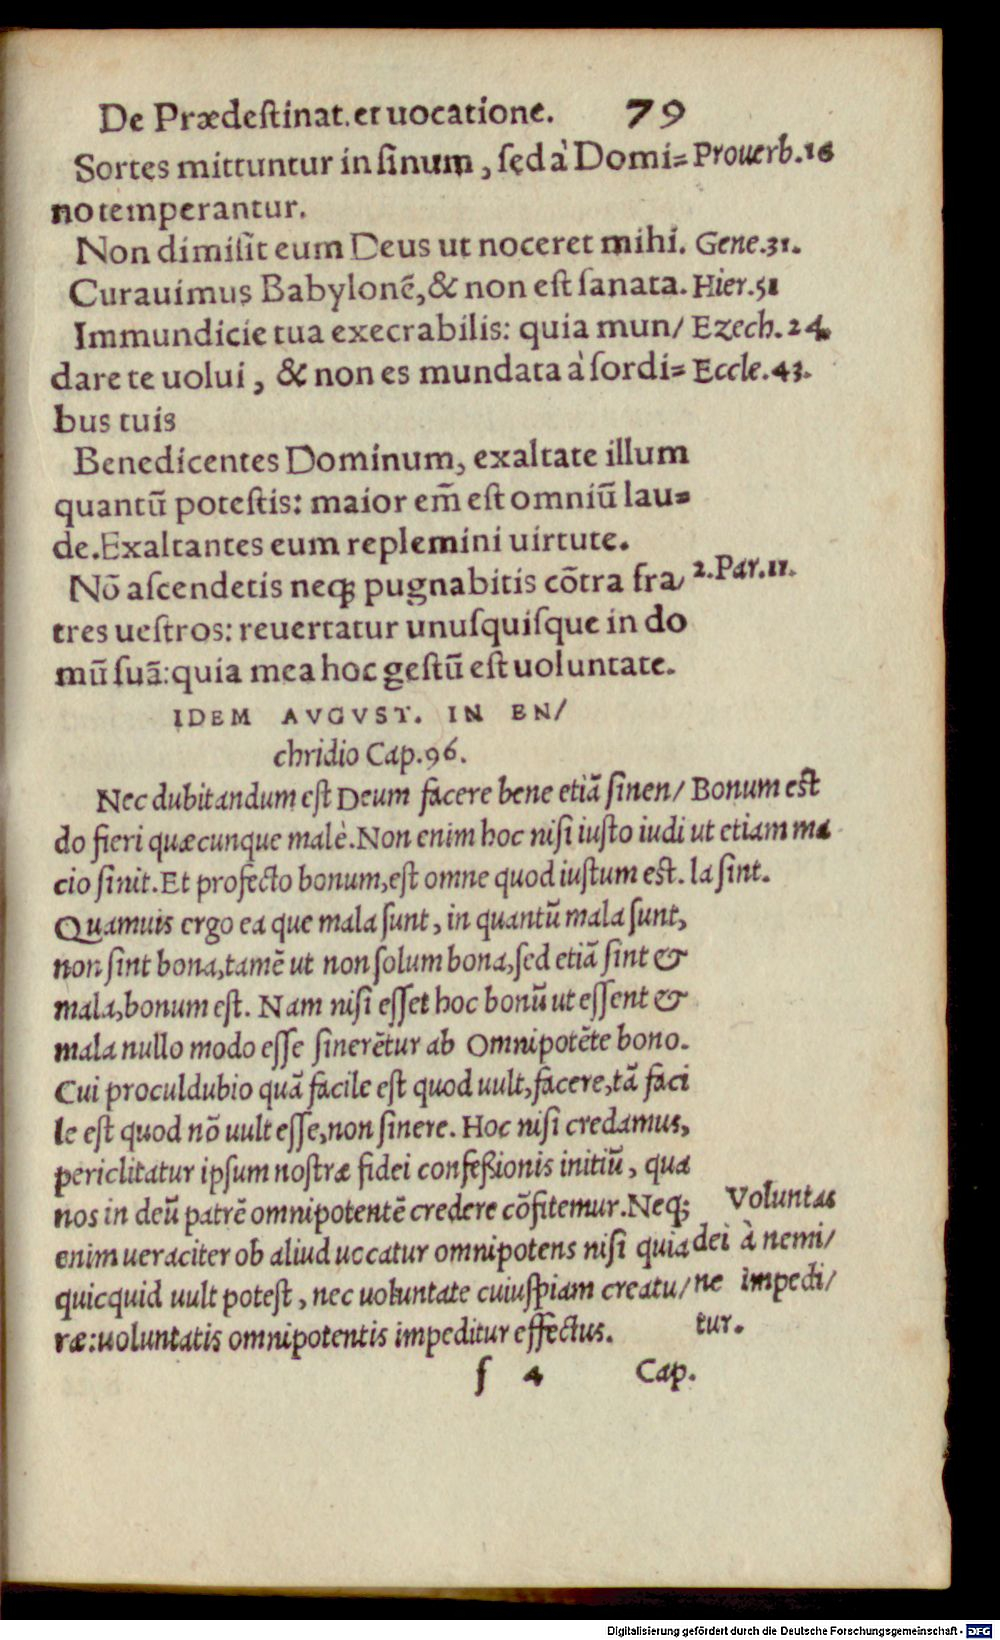 De Prædeſtinat. et uocatione. 79
Sortes mittuntur in ſinum, ſed à Domi= Prouerb.16
no temperantur.
Non dimiſit eum Deus ut noceret mihi. Gene.31.
Curauimus Babylonē, & non eſt ſanata. Hier.51
Immundicie tua execrabilis: quia mun/ Ezech.24.
dare te uolui, & non es mundata à ſordi= Eccle.43.
bus tuis
Benedicentes Dominum, exaltate illum
quantū poteſtis: maior em̄ eſt omniū lau=
de. Exaltantes eum replemini uirtute.
Nō aſcendetis neqꝫ pugnabitis cōtra fra/ 2.Par.11.
tres ueſtros: reuertatur unuſquiſque in do
mū ſuā: quia mea hoc geſtū eſt uoluntate.
IDEM AVGVST. IN EN/
chridio Cap.96.
Nec dubitandum eſt Deum facere bene etiā ſinen/ Bonum eſt
do fieri quæcunque malè. Non enim hoc niſi iuſto iudi ut etiam ma
cio ſinit. Et profecto bonum, eſt omne quod iuſtum eſt. la ſint.
Quamuis ergo ea que mala ſunt, in quantū mala ſunt,
non ſint bona, tamē ut non ſolum bona, ſed etiā ſint &
mala, bonum eſt. Nam niſi eſſet hoc bonū ut eſſent &
mala nullo modo eſſe ſinerētur ab Omnipotēte bono.
Cui proculdubio quā facile eſt quod uult, facere, tā faci
le eſt quod nō uult eſſe, non ſinere. Hoc niſi credamus,
periclitatur ipſum noſtræ fidei confeßionis initiū, qua
nos in deū patrē omnipotentē credere cōfitemur. Neqꝫ Voluntas
enim ueraciter ob aliud uocatur omnipotens niſi quia dei à nemi/
quicquid uult poteſt, nec uoluntate cuiuſpiam creatu/ ne impedi/
ræ: uoluntatis omnipotentis impeditur effectus. tur.
ſ 4 Cap.
Digitalisierung gefördert durch die Deutsche Forschungsgemeinschaft - DFG